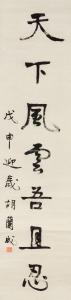 天下風雲吾且忍
戊申迎歳胡蘭成